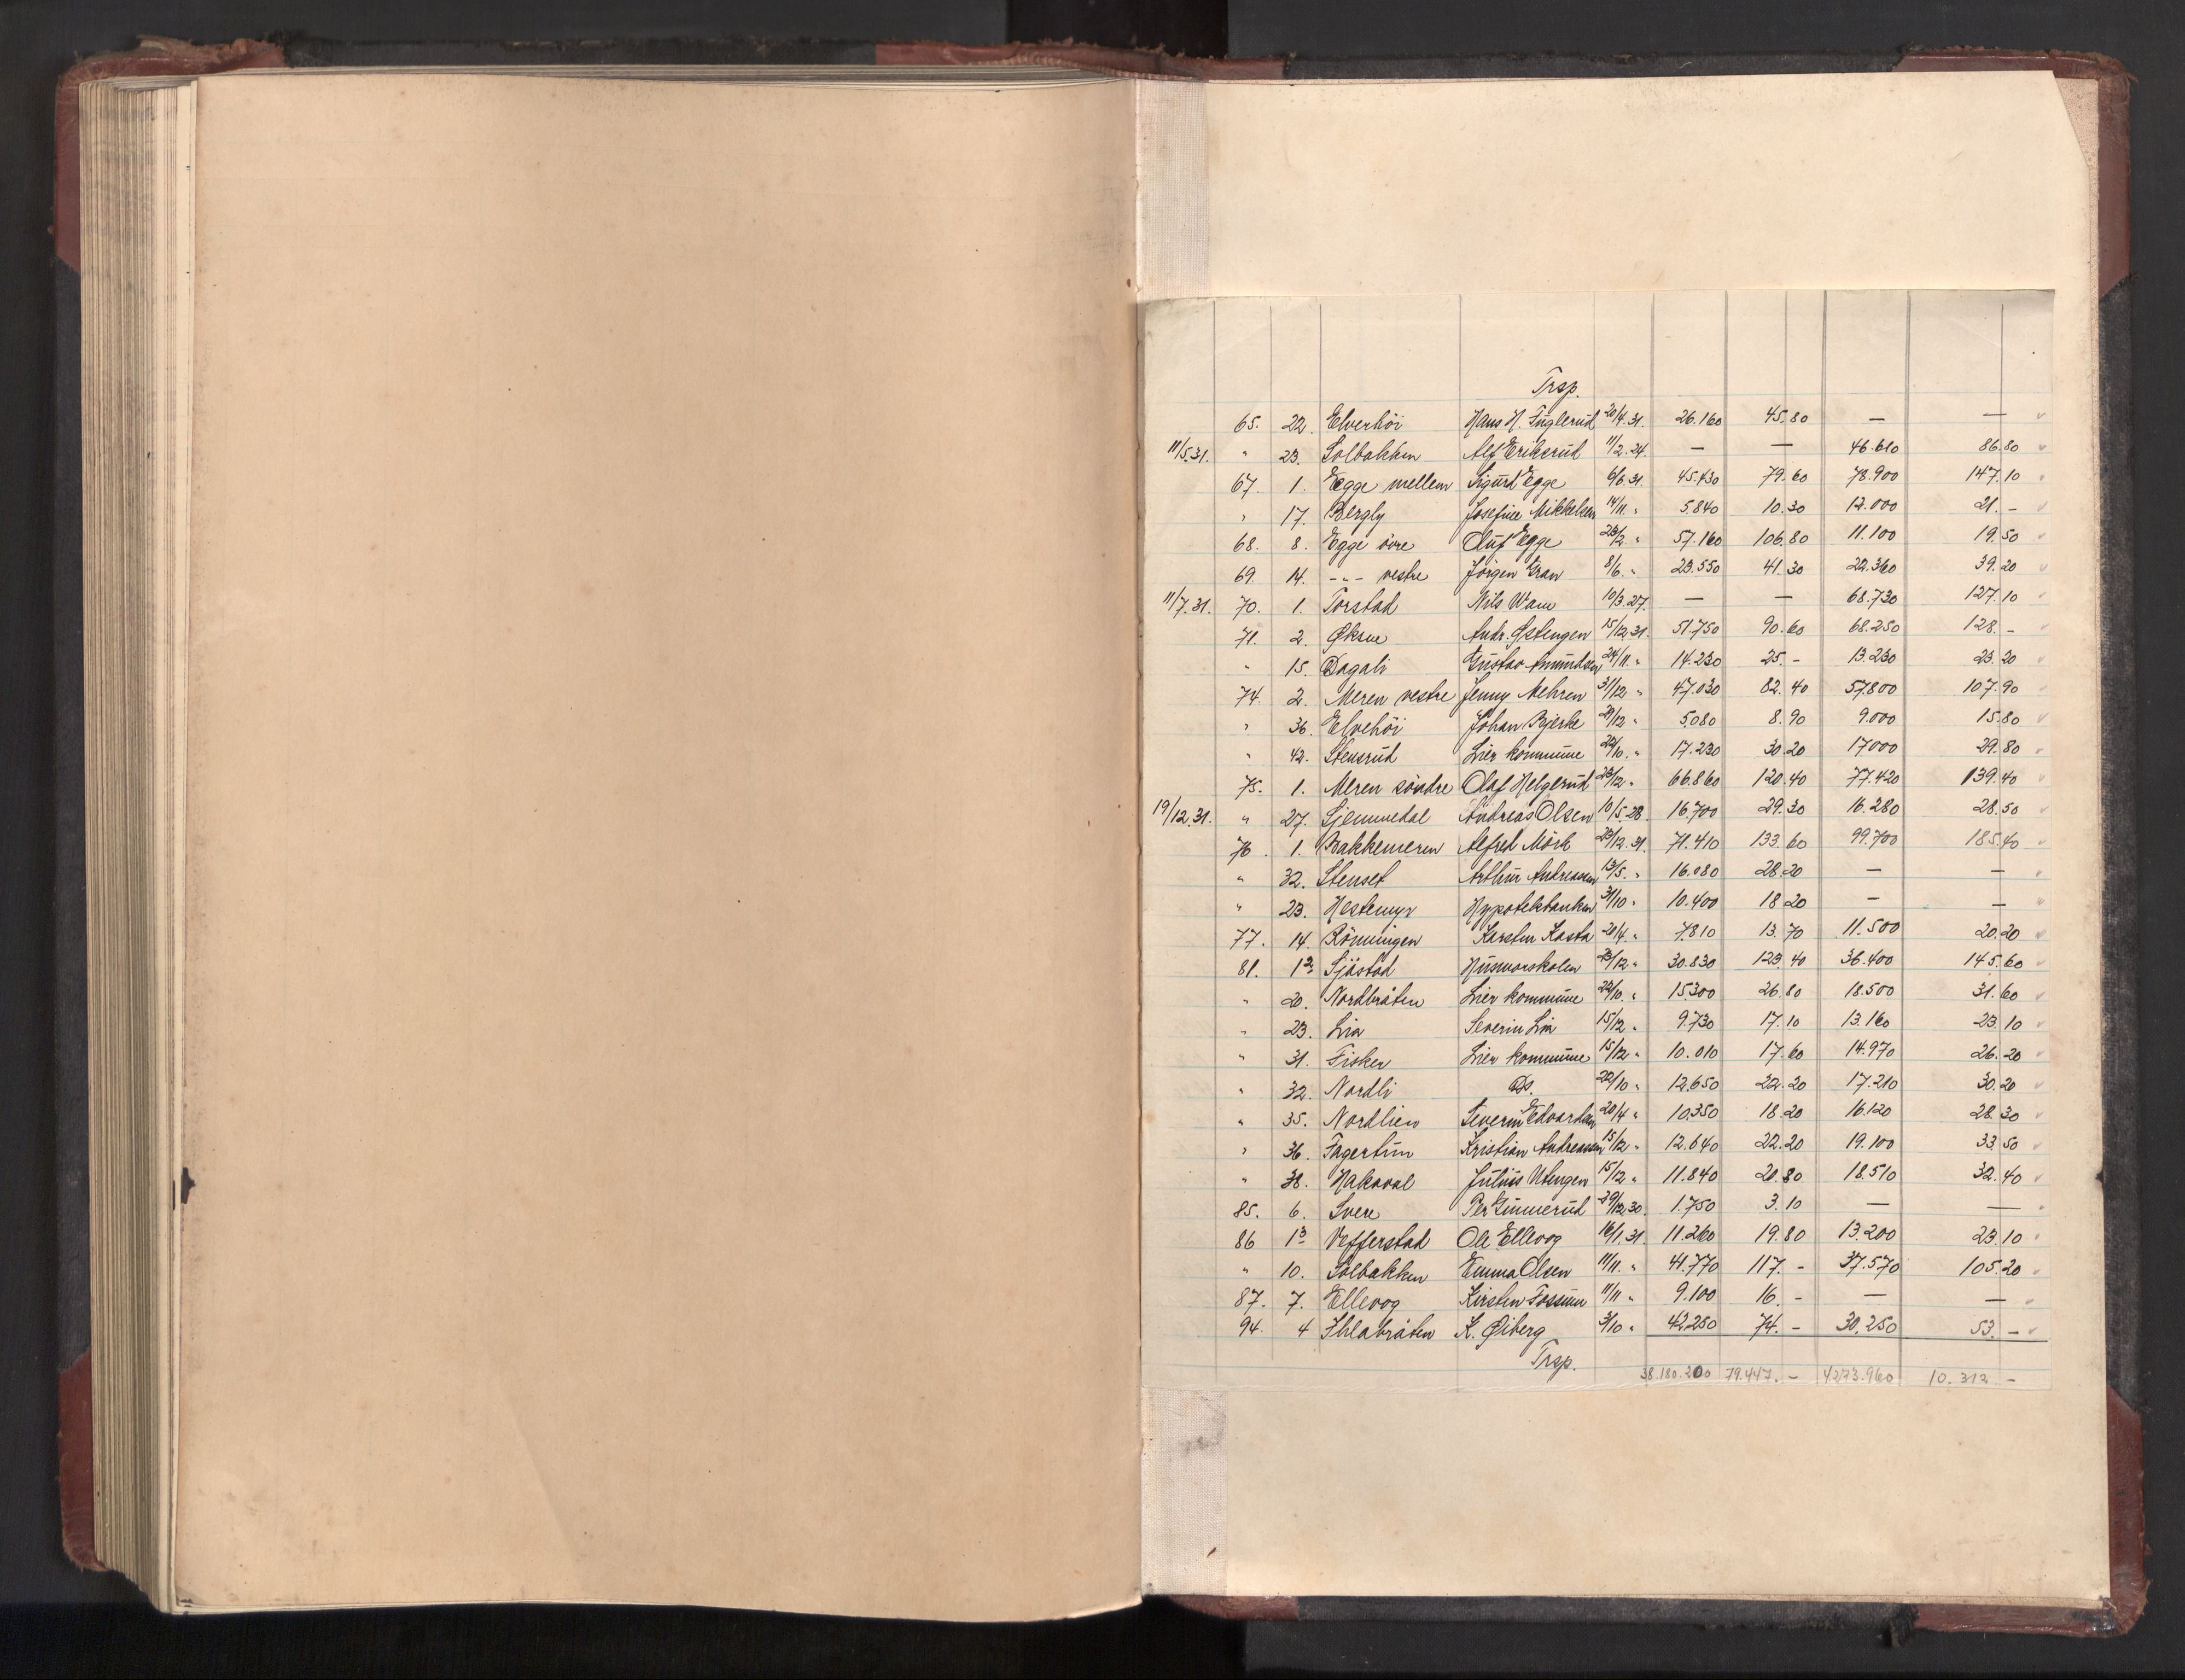 Trsp.
65. 22. Elverhöi Hans H. Fuglerud 20/4.31. 26.160 45.80 — —
11/5.31. " 23. Solbakken Alf Erikerud 11/2.24. — — 46.610 86.80
67. 1. Egge mellem Sigurd Egge 6/6.31. 45.430 79.60 78.900 147.10
" 17. Bergly Josefine Mikkelsen 14/11. " 5.840 10.30 12.000 21.-
68. 8. Egge övre Oluf Egge 23/2 " 57.160 106.80 11.100 19.50
69 14. -"- vestre Jörgen Gran 8/6. " 23.550 41.30 22.360 39.20
11/7.31. 70. 1. Torstad Nils Wam 10/3.27. — — 68.730 127.10
71. 2. Øksne Andr. Østengen 15/12.31. 51.750 90.60 68.250 128.-
" 15. Dagali Gustav Amundsen 24/11. " 14.230 25.- 13.230 23.20
74. 2. Meren vestre Jenny Mehren 31/12 " 47.030 82.40 57.800 107.90
" 36. Elvehöi Johan Bjerke 21/12 " 5.080 8.90 9.000 15.80
" 42. Stensrud Lier kommune 22/10. " 17.230 30.20 17000 29.80
75. 1. Meren söndre Olaf Helgerud 23/12 " 66.860 120.40 77.420 139.40
19/12.31. " 27. Sjemmedal Andreas Olsen 10/5.28. 16.700 29.30 16.280 28.50
76. 1. Bakkemeren Alfred Mörk 23/12.31. 71.410 133.60 99.700 185.40
" 32. Stenset Arthur Andreassen 13/5. " 16.080 28.20 — —
" 23. Hestemyr Hypotekbanken 31/10 " 10.400 18 20 — —
77. 14. Rönningen Karsten Kasta 20/4. " 7.810 13.70 11.500 20.20
81. 1² Sjåstad Husmorskolen 23/12 " 30.830 123.40 36.400 145.60
" 20. Nordbråten Lier kommune 22/10. " 15.300 26.80 18.500 31.60
" 23. Lia Severin Lia 15/12. " 9.730 17.10 13.160 23.10
" 31. Fisker Lier kommune 15/12 " 10.010 17.60 14.970 26.20
" 32. Nordli Do. 22/10 " 12.650 22.20 17.210 30.20
" 35. Nordlien Severin Edvardsen 20/4 " 10.350 18.20 16.120 28.30
" 36. Fagertun Kristian Andreassen 15/12 " 12.640 22.20 19.100 33.50
" 38. Hakaval Julius Utengen 15/12 " 11.840 20.80 18.510 32.40
85. 6. Svere Per Gunnerud 29/12.30. 1.750 3.10 — —
86 1³ Vefferstad Ole Ellevog 16/1.31. 11.260 19.80 13.200 23.10
" 10. Solbakken Emma Olsen 11/11. " 41.770 117.- 37.570 105.20
87. 7. Ellevog Kirsten Fossum 11/11 " 9.100 16.- — —
94. 4 Ihlabråten K. Øiberg 3/10 " 42.250 74.- 30.250 53.-
Trsp.
38.180.200 79.447.- 4273.960 10.312 -